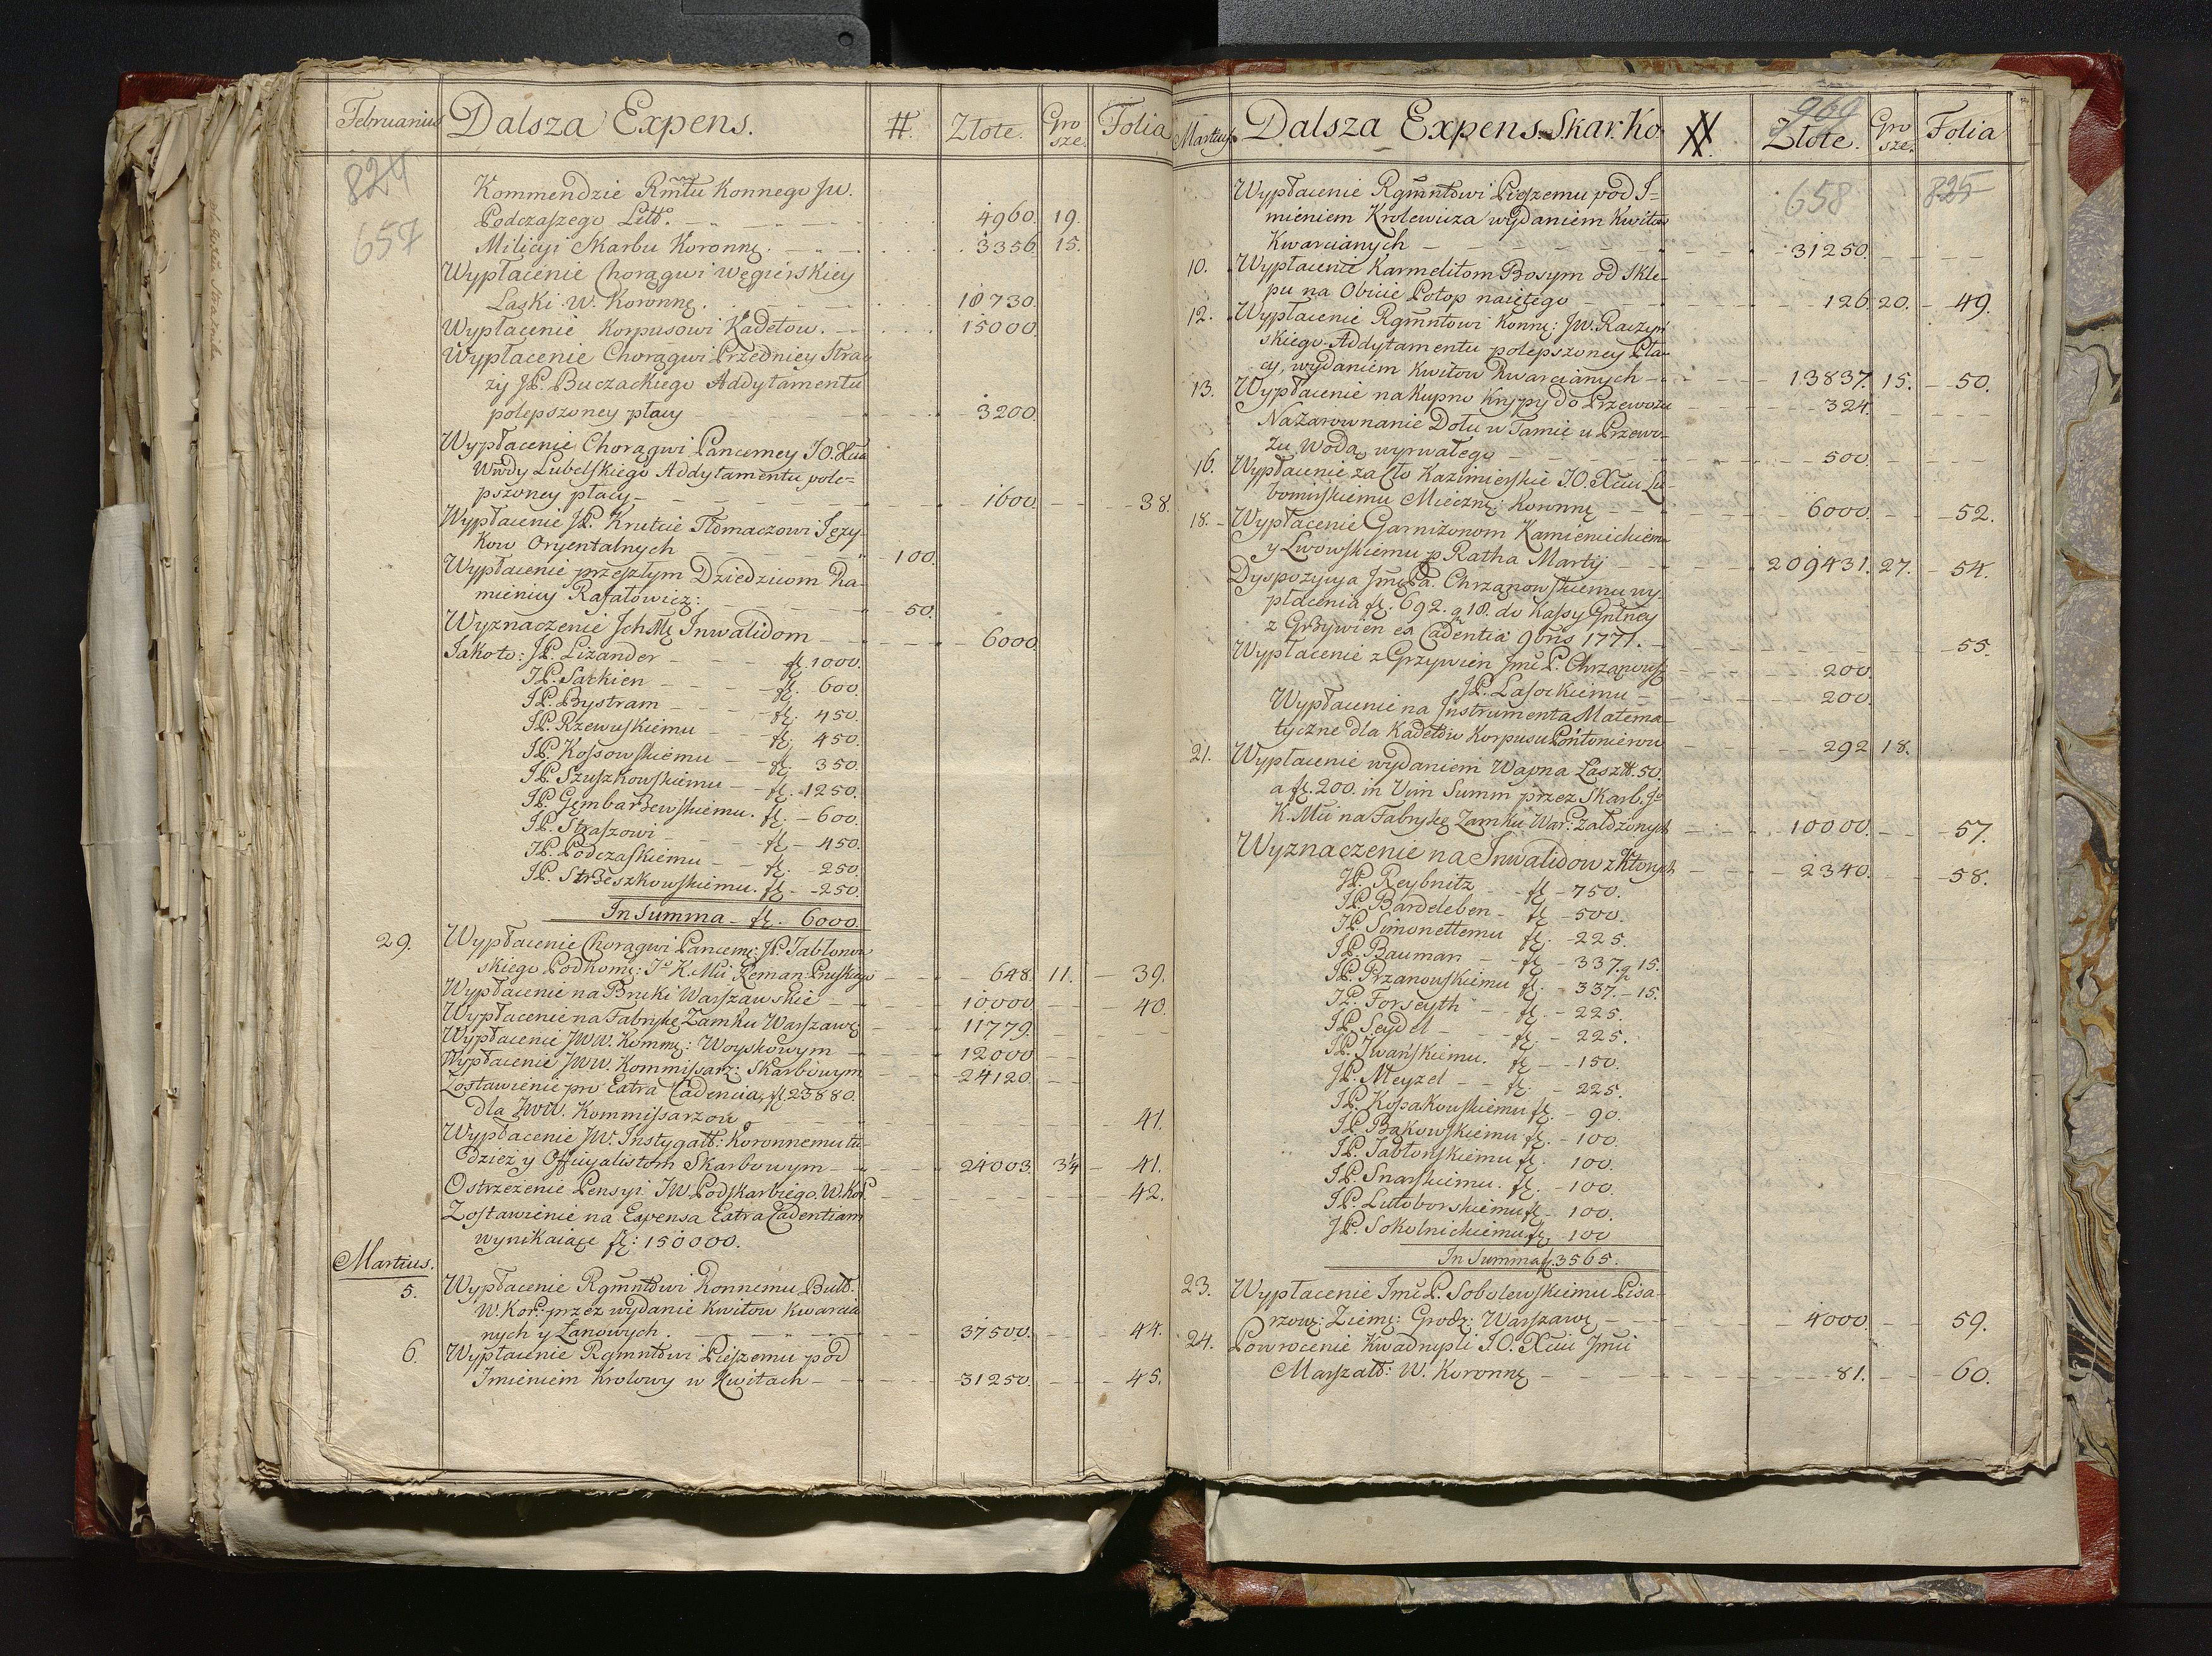 Februarius Dalsza Expens. #. Złote. Gro sze. Folia
824
657
Kommendzie Rmtu Konnego JW.
Podczaszego Litt. 4960. 19.
Milicyi Skarbu Koronnę. 3356. 15.
Wypłacenie Chorągwi Węgierskiey
Laski W. Koronnę. 10730.
Wypłacenie Korpusowi Kadetow. 15000.
Wypłacenie Chorągwi Przedniey Stra
ży JP. Buczackiego Addytamentu
polepszoney płacy 3200.
Wypłacenie Chorągwi Pancerney JO. Xcia
Wwdy Lubelskiego Addytamentu pole=
pszoney płacy 1600. 38.
Wypłacenie JP. Krutcie Tłomaczowi Języ
kow Oryentalnych 100.
Wypłacenie przeszłym Dziedzicom Ka-
mienicy Rafałowicz: 50.
Wyznaczenie Jchmę Inwalidom 6000.
Jakoto: JP. Lizander fl. 1000.
JP. Sackien fl. 600.
JP. Bystram fl. 450.
JP. Rzewuskiemu fl. 450.
JP. Kossowskiemu fl. 350.
JP. Szuszkowskiemu fl. 1250.
JP. Gembarzewskiemu. fl. 600.
JP. Straszowi fl. 450.
JP. Podczaskiemu fl. 250.
JP. Strzeszkowskiemu. fl. 250.
In Summa fl. 6000.
29. Wypłacenie Chorągwi Pancernę: JP. Jabłonow
skiego Podkomę: Jo K. Mci Ziemian: Pruskiego 648. 11. 39.
Wypłacenie na Bruki Warszawskie 10000. 40.
Wypłacenie na Fabrykę Zamku Warszawę 11779.
Wypłacenie JWW. Kommę: Woyskowym 12000
Wypłacenie JWW. Kommissarz: Skarbowym 24120.
Zostawienie pro Extra Cadencia fl. 23880.
dla JWW. Kommissarzow 41.
Wypłacenie JW. Instygatt: Koronnemu tu-
dziez y Officyalistom Skarbowym 24003. 3¼ 41.
Ostrzeżenie Pensyi JW. Podskarbiego W. Kor. 42.
Zostawienie na Expensa Extra Cadentiam
wynikaiące fl: 150000.
Martius.
5. Wypłacenie Rgmntowi Konnemu Buł:
W. Kor: przez wydanie Kwitow Kwarcia
nych y Łanowych. 37500. 44.
6. Wypłacenie Rgmntowi Pieszemu pod
Imieniem Krolowy w Kwitach 31250. 45.
Martius. Dalsza Expens Skar: Ko. #. Złote. Gro sze. Folia
969
658 825
Wypłacenie Rgmntowi Pieszemu pod I=
mieniem Krolewicza wydaniem Kwitow
Kwarcianych 31250.
10. Wypłacenie Karmelitom Bosym od Skle-
pu na Obicie Potop naiętego 126. 20. 49.
12. Wypłacenie Rgmntowi Konnę: JW. Raczyń
skiego Addytamentu polepszoney Pła-
cy, wydaniem Kwitow Kwarcianych 13837. 15. 50.
13. Wypłacenie na Kupno Krypy do Przewozu 324.
Na Zarownanie Dołu w Tamie u Przewo-
zu Wodą wyrwałego 500.
16. Wypłacenie za Cło Kazimierskie JO. Xciu Lu-
bomirskiemu Miecznę: Koronnę 6000. 52.
18. Wypłacenie Garnizonom Kamienieckiem
y Lwowskiemu p Ratha Martij 209431. 27. 54.
Dyspozycya Jmę Pa. Chrzanowskiemu wy
płacenia fl: 692. g 18. do Kassy Gnlney
z Grzywien ex Cadentia 9bris 1771. 55.
Wypłacenie z Grzywien Jmc P. Chrzanowsk 200.
JP. Lasockiemu 200.
Wypłacenie na Instrumenta Matema-
tyczne dla Kadetow Korpusu Pontonierow 292 18.
21. Wypłacenie wydaniem Wapna Łaszt. 50.
a fl. 200. in Vim Summ przez Skarb. Jo
K. Mci na Fabrykę Zamku War: założonych 10000. 57.
Wyznaczenie na Inwalidow z Ktorych 2340. 58.
JP. Reybnitz fl 750.
JP. Bardeleben fl 500.
JP. Simonettemu fl. 225.
JP. Bauman fl 337. g 15.
JP. Przanowskiemu fl. 337. 15.
JP. Forseyth fl. 225.
JP. Seydel fl. 225.
JP. Iwańskiemu. fl 150.
JP. Meyzel fl. 225.
JP. Kossakowskiemu fl. 90.
JP. Bąkowskiemu fl. 100.
JP. Jabłonskiemu fl. 100.
JP. Snarskiemu. fl. 100.
JP. Lutoborskiemu fl. 100.
JP. Sokolnickiemu fl. 100
In Summa fl. 3565.
23. Wypłacenie Jmc P. Sobolewskiemu Pisa-
rzow: Ziemę: Grodz: Warszawę 4000. 59.
24. Powrocenie Kwadrupli JO. Xciu Jmci
Marszałł: W. Koronnę 81. 60.